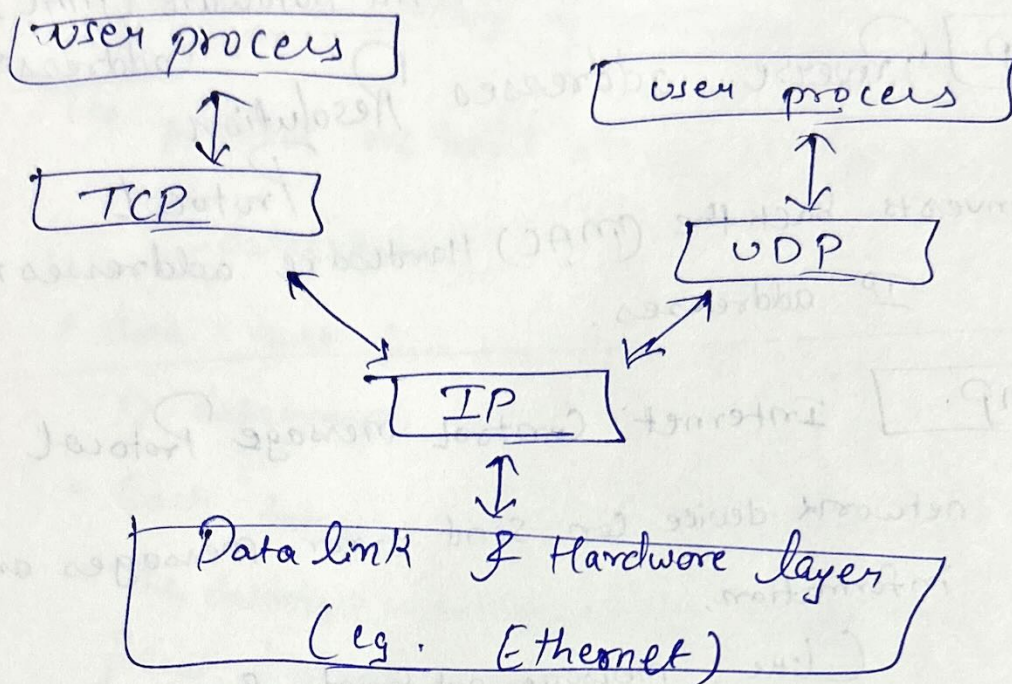 User process
user process
TCP
UDP
IP
Data link & Hardware layer
(eg. Ethernet)